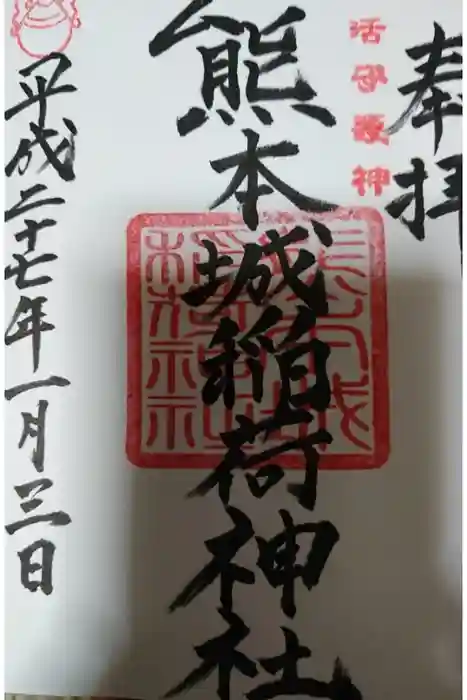 奉拝
熊本城稲荷神社
平成二十七年一月三日